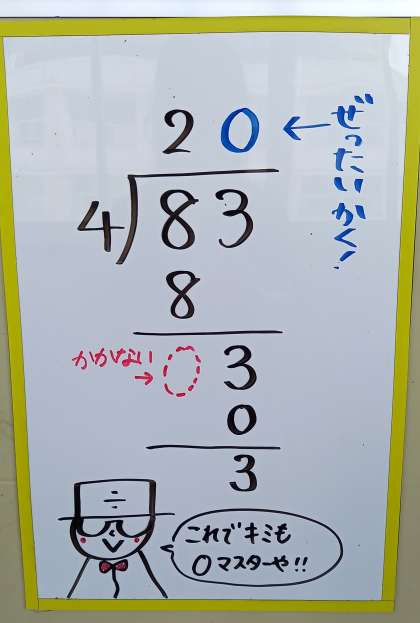 20
ぜったいかく!
←
4)83
8
かかない
→
0 3
0
3
これでキミも
0マスターや!!